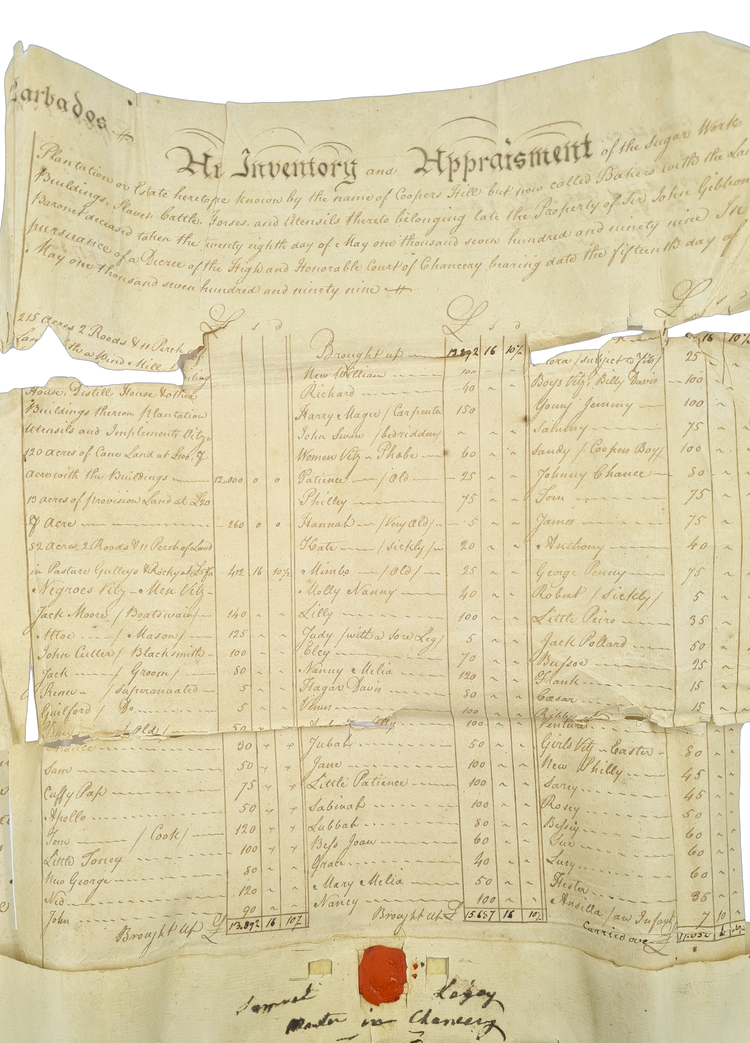 Barbados
An Inventory and Appraisment of the Sugar Work
Plantation or Estate heretofore known by the name of Coopers Hill but now called Bakers with the Land
Buildings, Slaves, Cattle, Horses, and Utensils thereto belonging late the Property of Sir John Gibbons
Baronet deceased taken the twenty eighth day of May one thousand seven hundred and ninety nine In
pursuance of a Decree of the High and Honorable Court of Chancery bearing date the fifteenth day of
May one thousand seven hundred and ninety nine
£ s d
215 Acres 2 Roods & 11 Perch of
with a Wind Mill
House, Distill House & other
Buildings thereon Plantation
Utensils and Implements Vizt
120 acres of Cane Land at
Acre with the Buildings 12,800 0 0
13 acres of provision Land at £20
Acre 260 0 0
82 Acres 2 Roods & 11 Perch of Land
in Pasture Gulleys & Rocky at 412 16 10½
Negroes Vizt Men Vizt
Jack Moore / Boatswain / 140
Attoe / Mason / 125
John Cutler / Blacksmith 100
Jack / Groom / 80
/ Superanuated 5
Guilford / Do 5
/ Old / 50
30
Sam 50
Cuffy Pap 75
Apollo 50
Tom / Cook / 120
Little Toney 100
New George 80
Ned 120
John 90
Brought up £ 13,892 16 10½
£ s d
Brought up 13,892 16 10½
New William 100
Richard 40
Harry Magee / Carpenter 150
John Swan / bedridden /
Women Vizt Phebe 60
Patience / Old 25
Philley 75
Hannah / Very Old / 5
Kate / Sickly / 20
Mimbo / Old / 25
Molly Nanny 40
Lilly 100
Judy / with a sore Leg / 5
Eley 70
Nanny Melia 120
Hagar Davis 80
Venus 100
Jubah 50
Jane 100
Little Patience 100
Sabinah 100
Lubbah 80
Bess Joan 60
Grace 40
Mary Melia 50
Nancy 100
Brought up £ 15657 16 10½
£ s d
16 10½
Cora / subject to fits / 25
Boys Vizt Billy Davis 100
Young Jemmy 100
Sammy 75
Sandy / Coopers Boy / 100
Johnny Chance 80
Tom 75
James 75
Anthony 40
George Penny 75
Robert / Sickly / 5
Little Peiro 35
Jack Pollard 50
Bussoe 25
Frank 15
Cæsar 15
Ventura
Girls Vizt Easter 80
New Philly 45
Sarey 45
Rosey 50
Bessey 60
Sue 60
Lucy 60
Hester 35
Ansilla / an Infant 7 10
Carried over £
Samuel
Master in Chancery